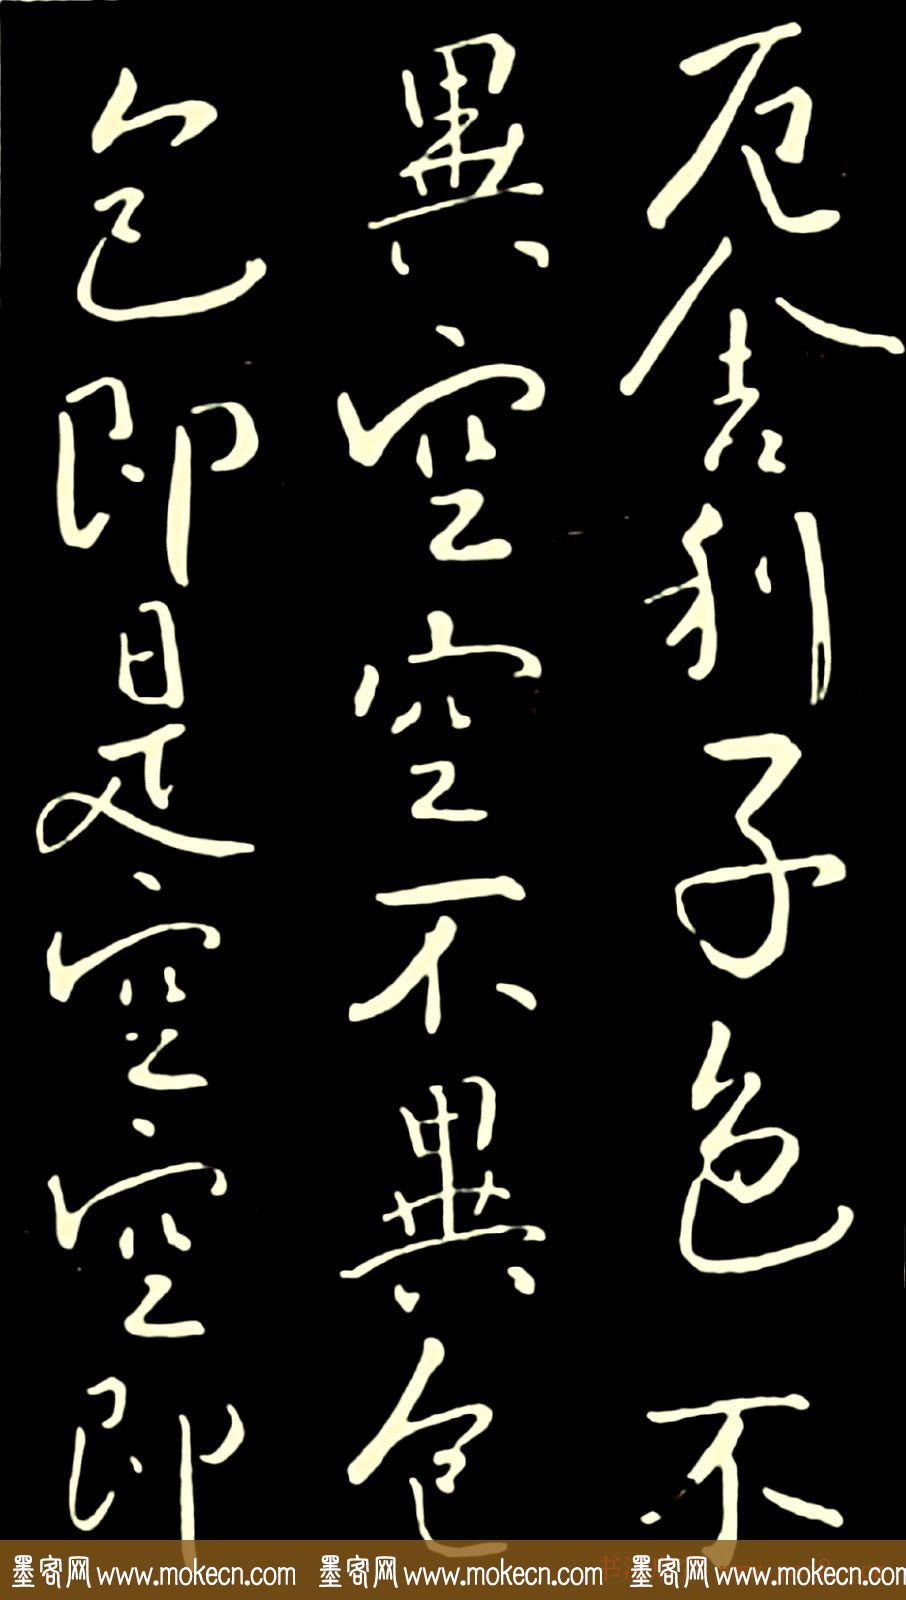 厄舍利子色不
異空空不異色
色即是空空即
墨客网 www.mokecn.com 墨客网 www.mokecn.com 墨客网 www.mokecn.com